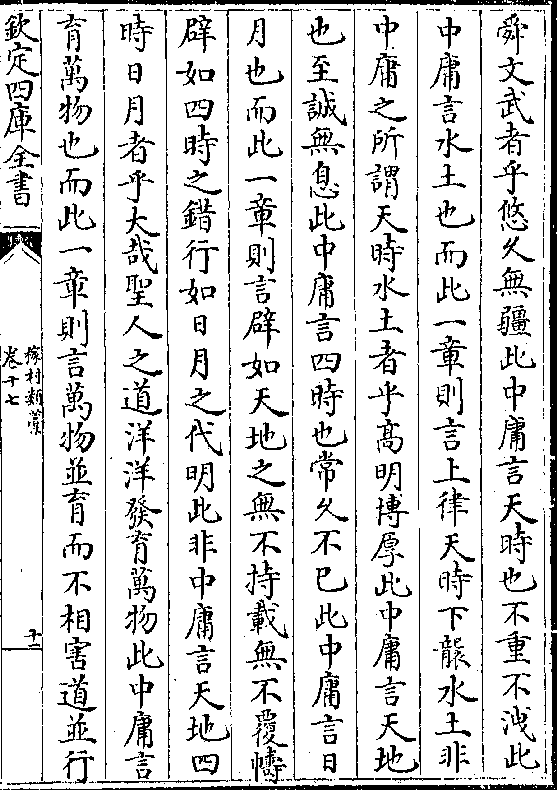 舜文武者乎悠久無疆此中庸言天時也不重不洩此
中庸言水土也而此一章則言上律天時下襲水土非
中庸之所謂天時水土者乎髙明博厚此中庸言天地
也至誠無息此中庸言四時也常久不已此中庸言日
月也而此一章則言辟如天地之無不持載無不覆幬
辟如四時之錯行如日月之代明此非中庸言天地四
時日月者乎大哉聖人之道洋洋發育萬物此中庸言
育萬物也而此一章則言萬物並育而不相害道並行
欽定四庫全書
梅村類藁
卷十七
十一